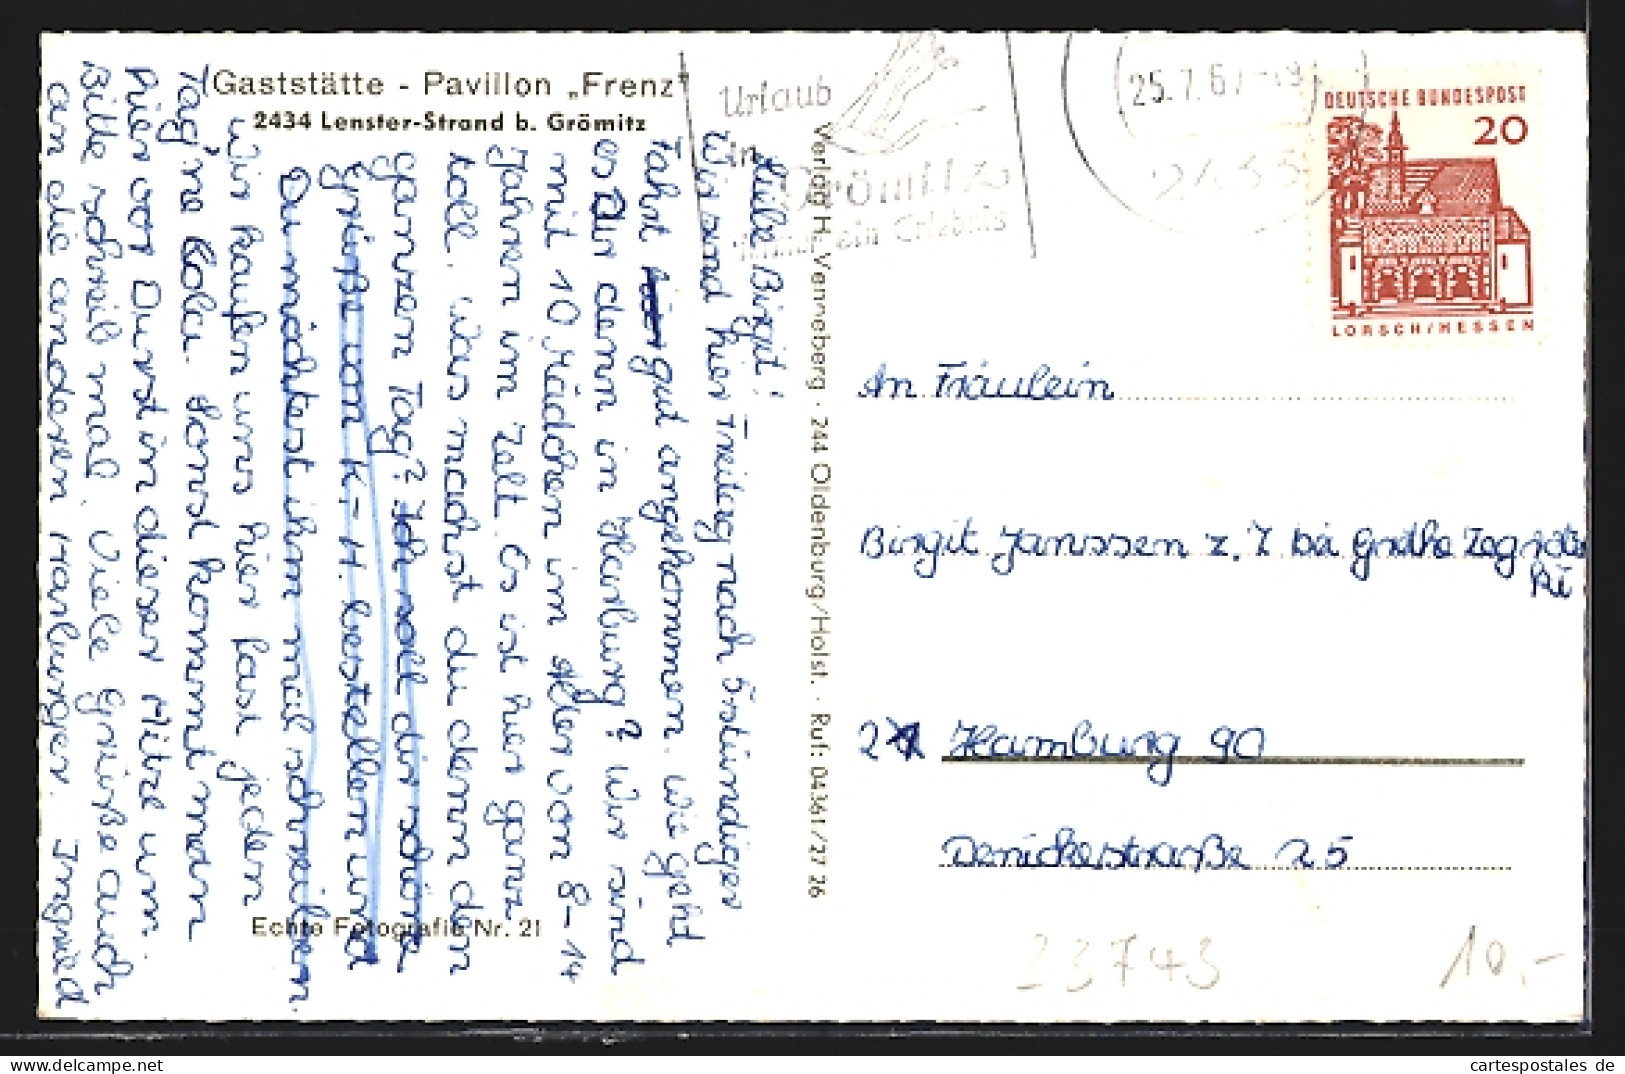 Gaststätte - Pavillon „Frenz"
2434 Lenster-Strand b. Grömitz
Liebe Birgit!
Wir sind hier Freitag nach 5stündiger
Fahrt hier gut angekommen. Wie geht
es Dir denn in Harburg? Wir sind
mit 10 Mädchen im Alter von 8-14
Jahren im Zelt. Es ist hier ganz
toll. Was machst du denn den
ganzen Tag? Ich soll dir schöne
Grüße von K.-H. bestellen und
Du möchtest ihm mal schreiben
Wir kaufen uns hier fast jeden
Tag 'ne Cola. Sonst kommt man
hier vor Durst in dieser Hitze um.
Bitte schreib mal. Viele Grüße auch
an die anderen Harburger. Ingrid
Echte Fotografie Nr. 21
Verlag H. Venneberg · 244 Oldenburg/Holst. · Ruf: 04361/27 26
Urlaub
in
Grömitz
ein Erlebnis
25.7.67-19
2433
DEUTSCHE BUNDESPOST
20
LORSCH/HESSEN
An Fräulein
Birgit Janssen z. Z bei Grethe
2 Hamburg 90
Denickestraße 25
23743
10,-
cartespostales de